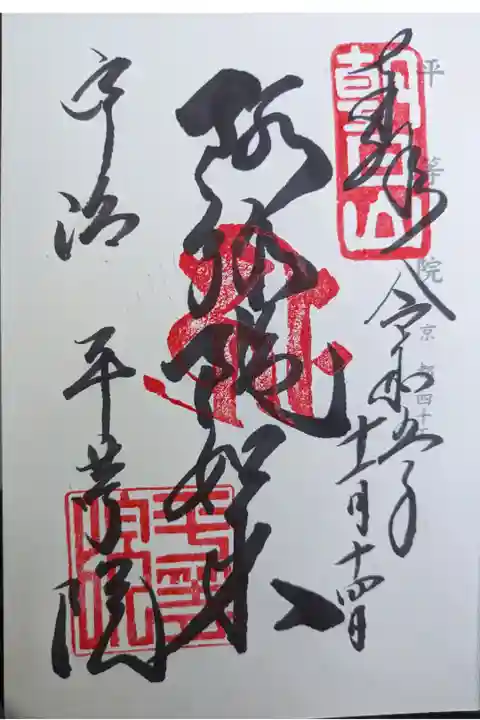 奉拝
令和五年
十一月十四日
阿弥陀如来
宇治 平等院
朝日山
平等院
平等院
京都四十五